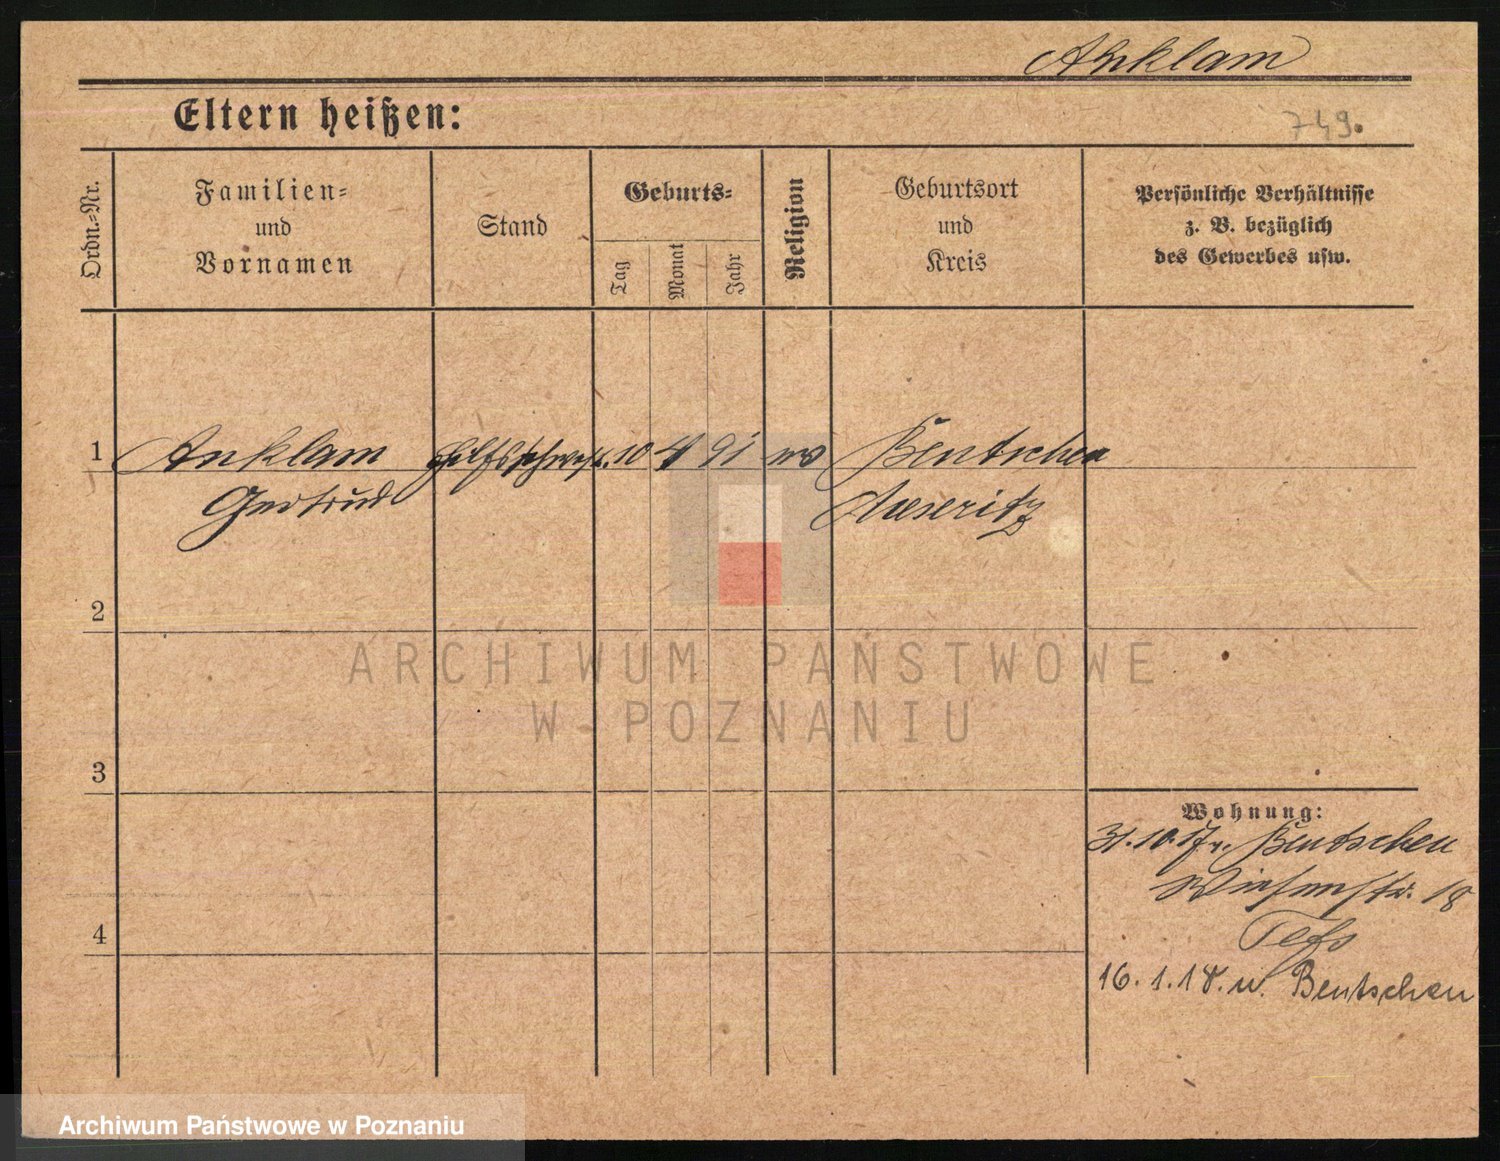 Anklam
Eltern heißen:
749.
Ordn.-Nr.
Familien-
und
Vornamen
Stand
Geburts-
Tag
Monat
Jahr
Religion
Geburtsort
und
Kreis
Persönliche Verhältnisse
z. B. bezüglich
des Gewerbes usw.
1 Anklam Hilfsschwest. 10 4 91 ev Bentschen
Gertrud Meseritz
2
ARCHIWUM PAŃSTWOWE
W POZNANIU
3
Wohnung:
31.10.17 v. Bentschen
Wiesenstr. 18
4
16.1.18. n. Bentschen
Archiwum Państwowe w Poznaniu